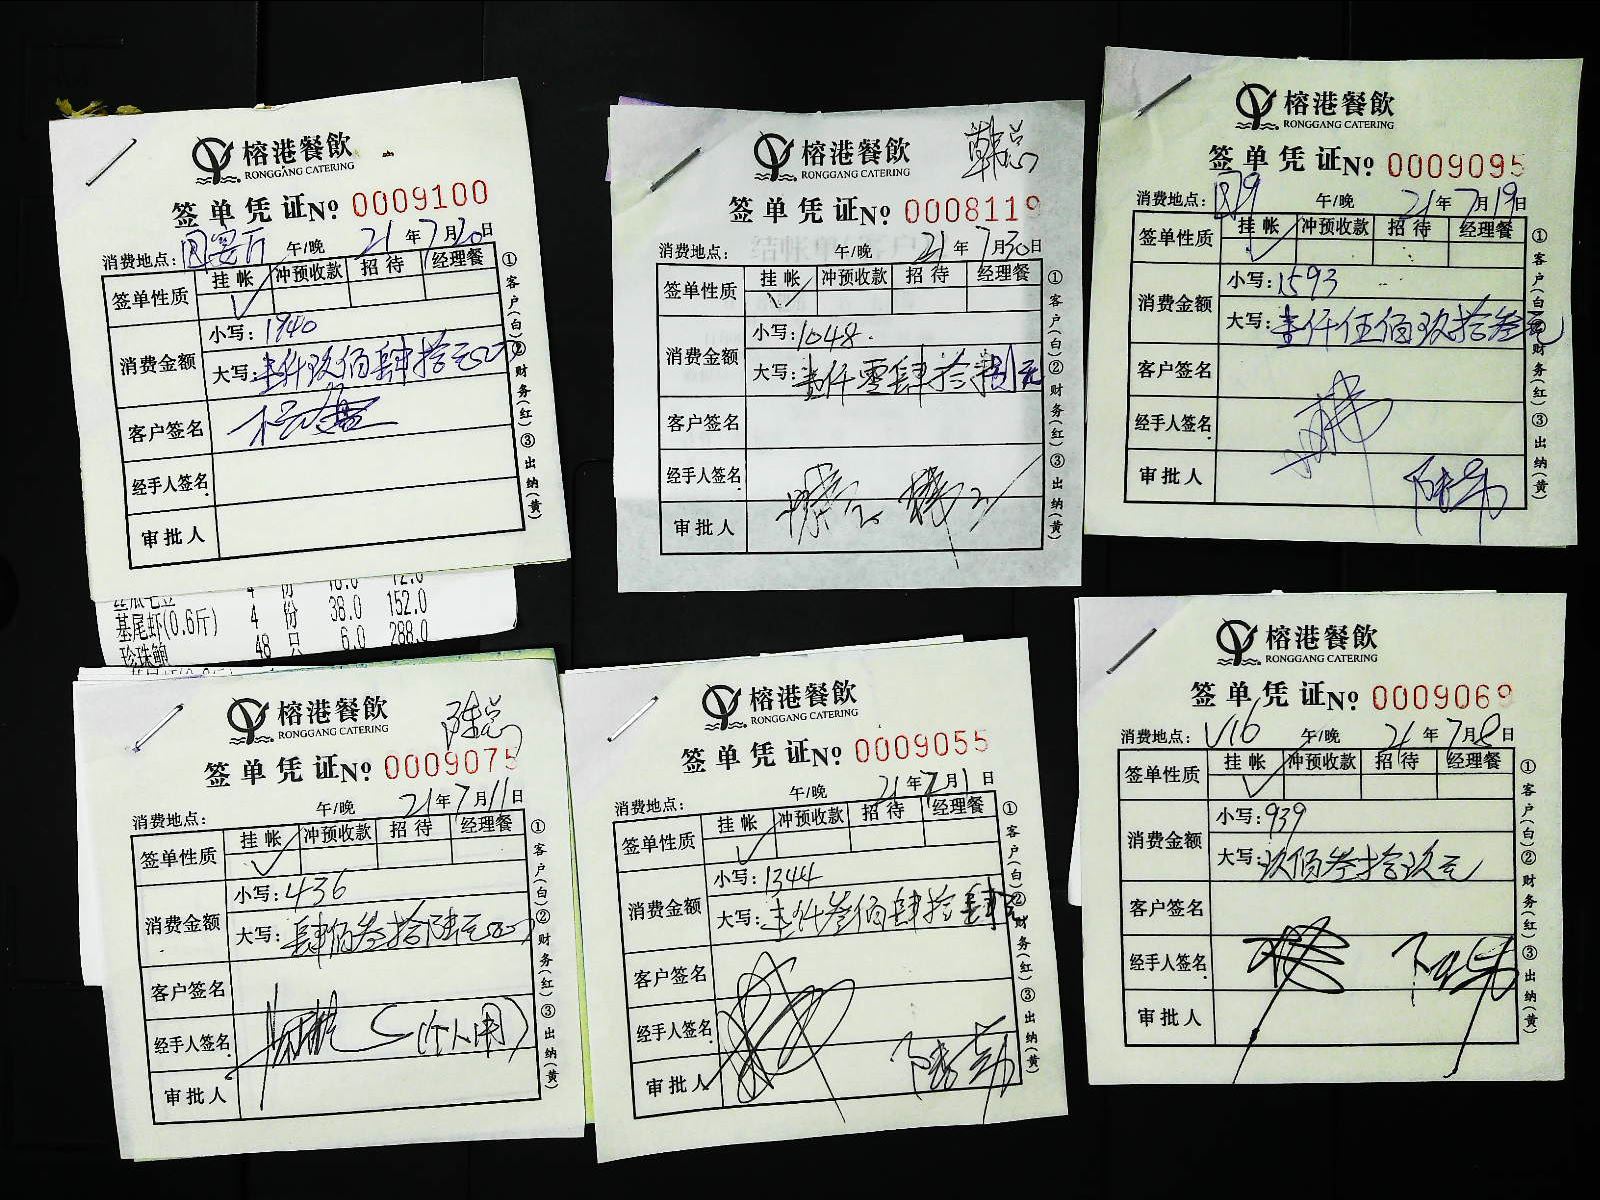 榕港餐飲
RONGGANG CATERING
签单凭证No 0009100
消费地点: 午/晚 21年7月20日
签单性质 挂帐 冲预收款 招待 经理餐
消费金额 小写: 1940
大写: 壹仟玖佰肆拾元
客户签名
经手人签名
审批人
①客户(白)②财务(红)③出纳(黄)
基尾虾(0.6斤) 4 份 38.0 152.0
珍珠鲍 48 只 6.0 288.0
榕港餐飲
RONGGANG CATERING
韩总
签单凭证No 0008119
消费地点: 午/晚 21年7月30日
签单性质 挂帐 冲预收款 招待 经理餐
消费金额 小写: 1048.
大写: 壹仟零肆拾捌元
客户签名
经手人签名
审批人
①客户(白)②财务(红)③出纳(黄)
榕港餐飲
RONGGANG CATERING
签单凭证No 0009095
消费地点: 午/晚 21年7月19日
签单性质 挂帐 冲预收款 招待 经理餐
消费金额 小写: 1593
大写: 壹仟伍佰玖拾叁元
客户签名
经手人签名
审批人
①客户(白)②财务(红)③出纳(黄)
榕港餐飲
RONGGANG CATERING
陈总
签单凭证No 0009075
消费地点: 午/晚 21年7月11日
签单性质 挂帐 冲预收款 招待 经理餐
消费金额 小写: 436
大写: 肆佰叁拾陆元
客户签名
经手人签名 (个人用)
审批人
①客户(白)②财务(红)③出纳(黄)
榕港餐飲
RONGGANG CATERING
签单凭证No 0009055
消费地点: 午/晚 21年7月1日
签单性质 挂帐 冲预收款 招待 经理餐
消费金额 小写: 1344
大写: 壹仟叁佰肆拾肆元
客户签名
经手人签名
审批人
①客户(白)②财务(红)③出纳(黄)
榕港餐飲
RONGGANG CATERING
签单凭证No 0009069
消费地点: V16 午/晚 21年7月8日
签单性质 挂帐 冲预收款 招待 经理餐
消费金额 小写: 939
大写: 玖佰叁拾玖元
客户签名
经手人签名
审批人
①客户(白)②财务(红)③出纳(黄)